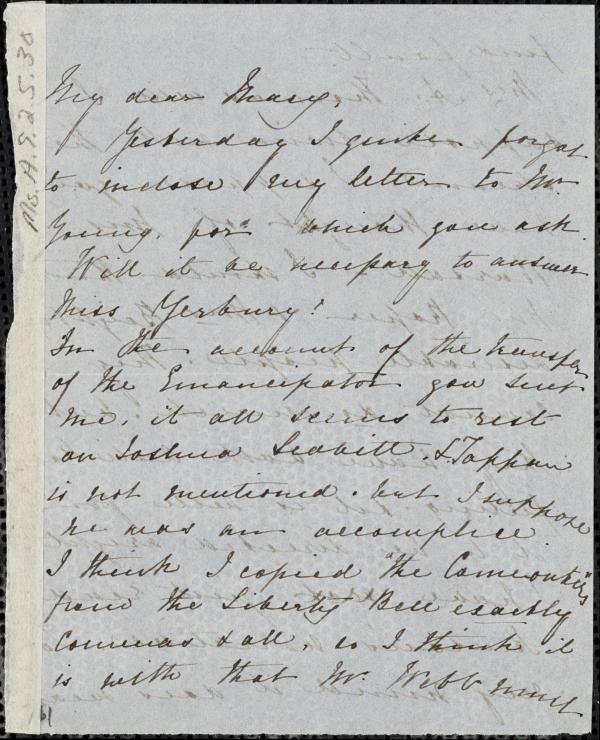 Ms. A. 9. 2. 5. 30
My dear Mary,
Yesterday I quite forgot
to inclose my letter to Mr
Young, for which you ask.
Will it be necessary to answer
Miss Yerbury?
In the account of the transfer
of the Emancipator you sent
me, it all seems to rest
on Joshua Leavitt. L Tappan
is not mentioned. but I suppose
he was an accomplice
I think I copied "the
from the Liberty Bell exactly
commas & all, so I think it
is with that Mr. Webb must
61